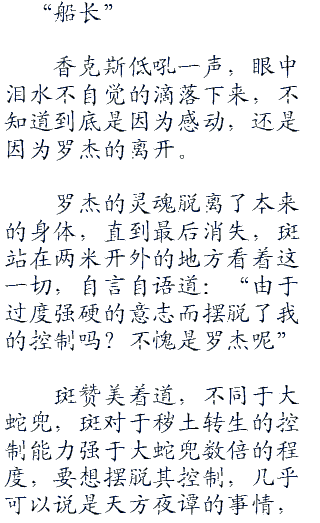 “船长”
香克斯低吼一声，眼中
泪水不自觉的滴落下来，不
知道到底是因为感动，还是
因为罗杰的离开。
罗杰的灵魂脱离了本来
的身体，直到最后消失，斑
站在两米开外的地方看着这
一切，自言自语道：“由于
过度强硬的意志而摆脱了我
的控制吗？不愧是罗杰呢”
斑赞美着道，不同于大
蛇兜，斑对于秽土转生的控
制能力强于大蛇兜数倍的程
度，要想摆脱其控制，几乎
可以说是天方夜谭的事情，